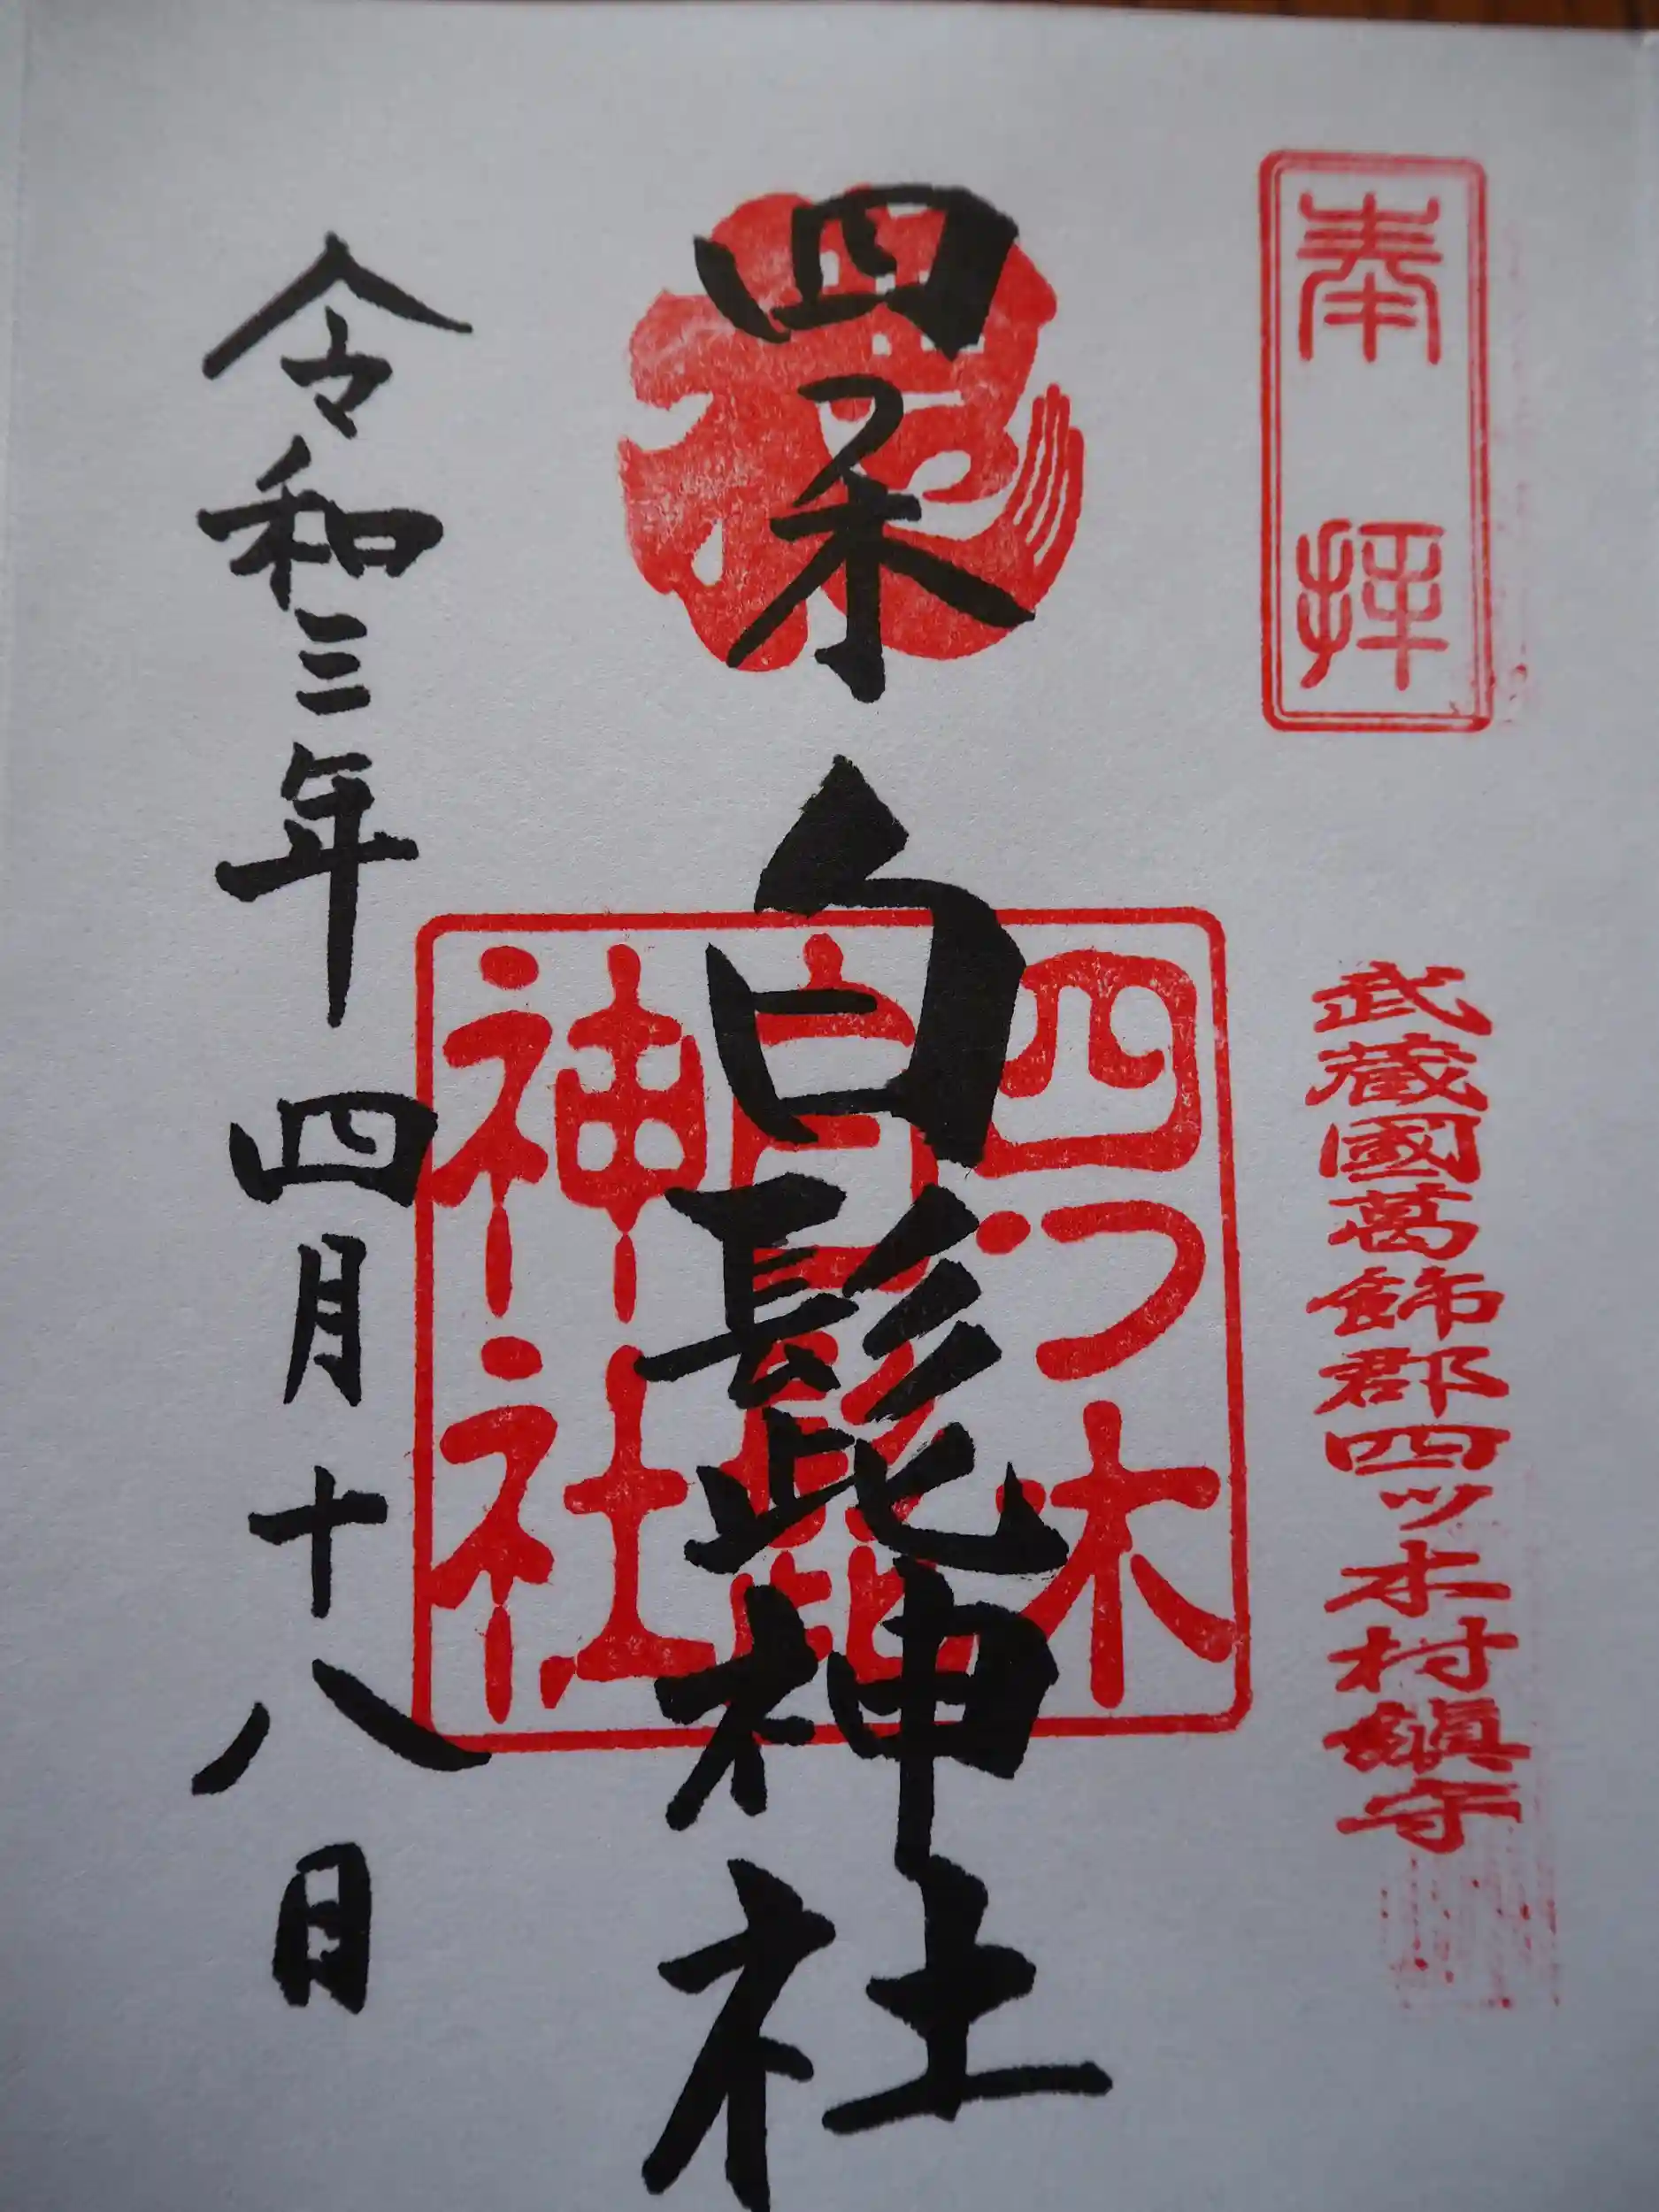 奉拝
武蔵國葛飾郡四ツ木村鎮守
四つ木白髭神社
四つ木
白髭
神社
令和三年四月十八日